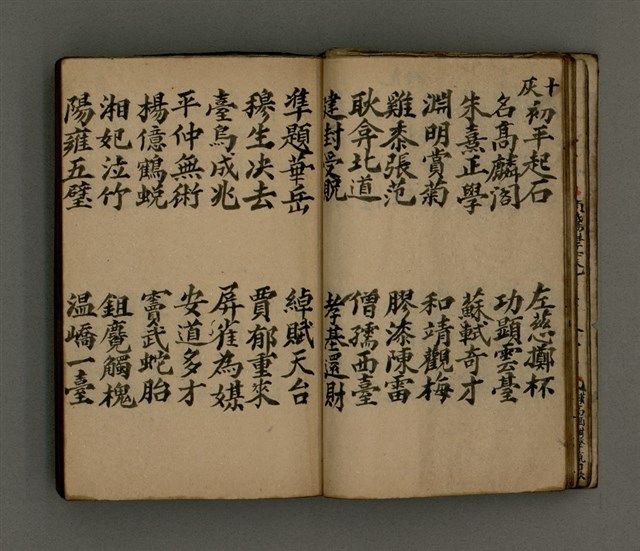 十灰
初平起石 左慈擲杯
名高麟閣 功顯雲臺
朱熹正學 蘇軾奇才
淵明賞菊 和靖觀梅
雞黍張范 膠漆陳雷
耿弇北道 僧孺西臺
建封受貺 孝基還財
準題華岳 綽賦天台
穆生决去 賈郁重來
臺烏成兆 屏雀為媒
平仲無術 安道多才
楊億鶴蛻 竇武蛇胎
湘妃泣竹 鉏麑觸槐
陽雍五璧 温嶠一臺